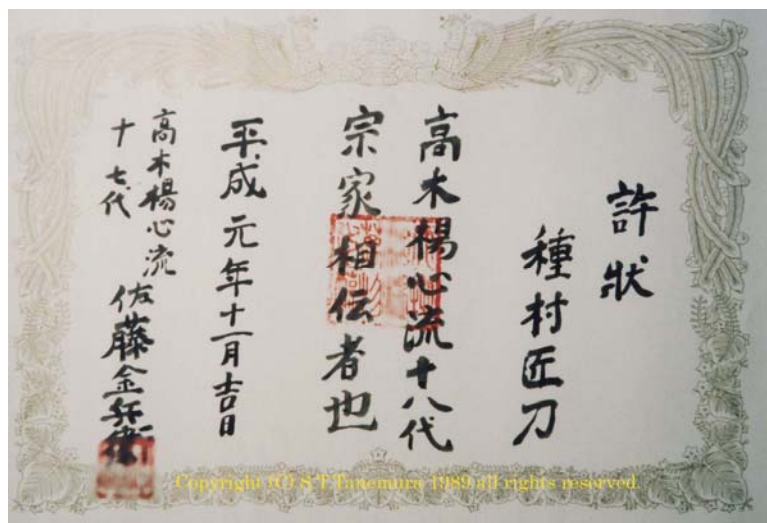 許状
種村匠刀
高木楊心流十八代
宗家相伝者也
平成元年十一月吉日
高木楊心流
十七代
佐藤金兵衛
Copyright (C) S.T.Tanemura 1989 all rights reserved.